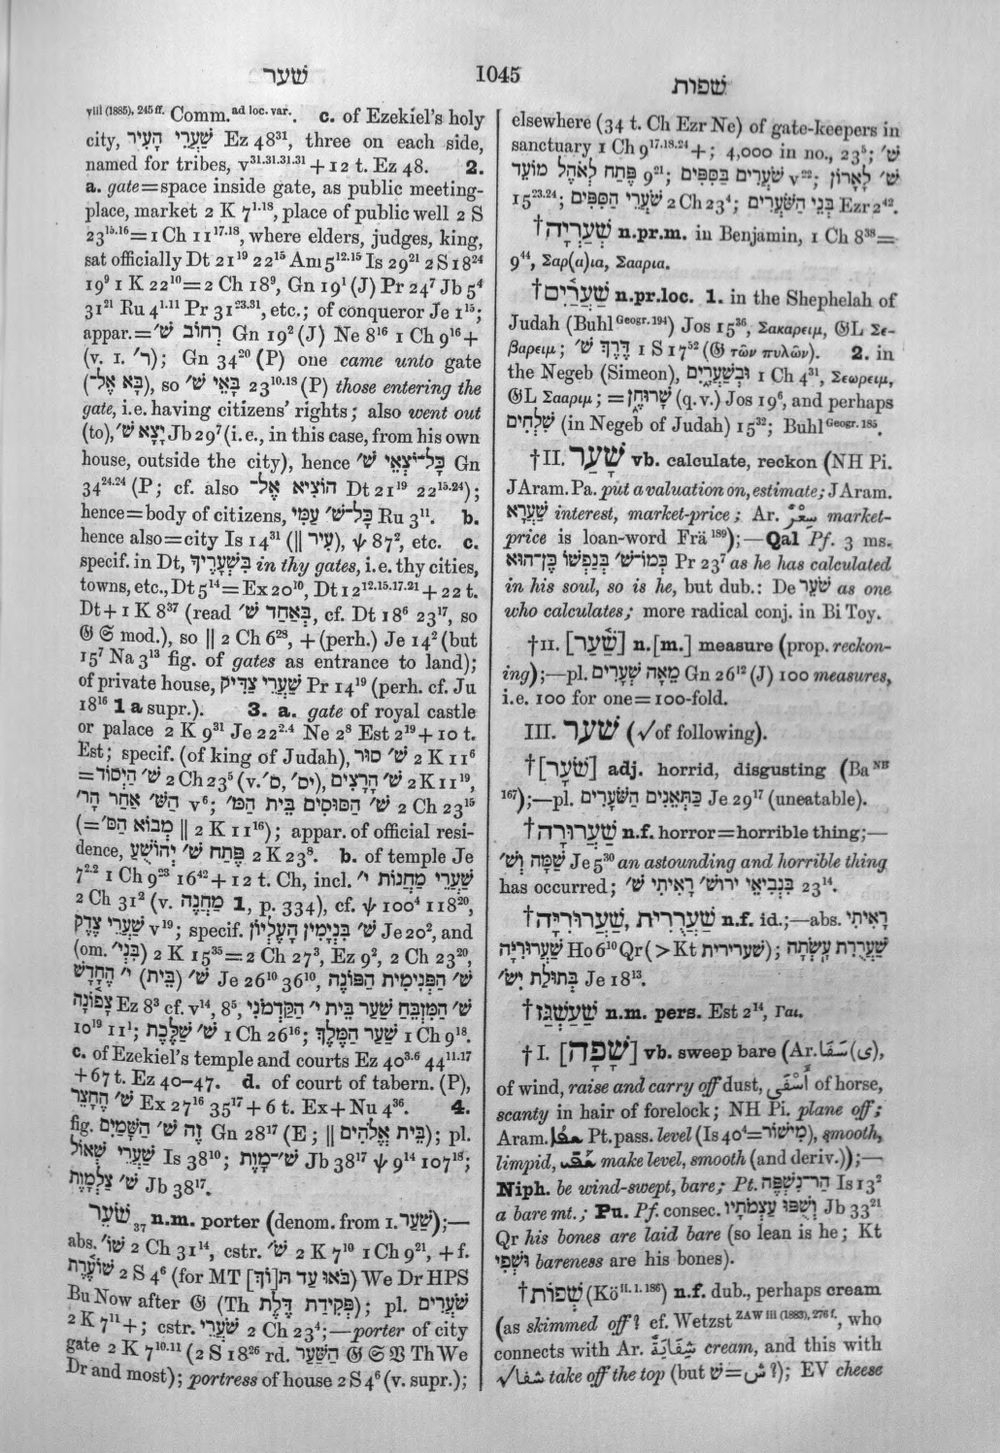 שׁער
1045
שׁפות
viii (1885), 245 ff. Comm. ad loc. var.. c. of Ezekiel's holy
city, שַׁעֲרֵי הָעִיר Ez 48³¹, three on each side,
named for tribes, v³¹·³¹·³¹·³¹ + 12 t. Ez 48. 2.
a. gate=space inside gate, as public meeting-
place, market 2 K 7¹·¹⁸, place of public well 2 S
23¹⁵·¹⁶=1 Ch 11¹⁷·¹⁸, where elders, judges, king,
sat officially Dt 21¹⁹ 22¹⁵ Am 5¹²·¹⁵ Is 29²¹ 2 S 18²⁴
19⁹ 1 K 22¹⁰=2 Ch 18⁹, Gn 19¹ (J) Pr 24⁷ Jb 5⁴
31²¹ Ru 4¹·¹¹ Pr 31²³·³¹, etc.; of conqueror Je 1¹⁵;
appar.=רְחוֹב שׁ׳ Gn 19² (J) Ne 8¹⁶ 1 Ch 9¹⁶ +
(v. 1. ר׳); Gn 34²⁰ (P) one came unto gate
(בָּא אֶל־), so בָּאֵי שׁ׳ 23¹⁰·¹⁸ (P) those entering the
gate, i.e. having citizens' rights; also went out
(to), יָצָא שׁ׳ Jb 29⁷ (i.e., in this case, from his own
house, outside the city), hence כָּל־יֹצְאֵי שׁ׳ Gn
34²⁴·²⁴ (P; cf. also הוֹצִיא אֶל־ Dt 21¹⁹ 22¹⁵·²⁴);
hence=body of citizens, כָּל־שׁ׳ עַמִּי Ru 3¹¹. b.
hence also=city Is 14³¹ (|| עִיר), ψ 87², etc. c.
specif. in Dt, בִּשְׁעָרֶיךָ in thy gates, i.e. thy cities,
towns, etc., Dt 5¹⁴=Ex 20¹⁰, Dt 12¹²·¹⁵·¹⁷·²¹ + 22 t.
Dt + 1 K 8³⁷ (read בְּאַחַד שׁ׳, cf. Dt 18⁶ 23¹⁷, so
𝔊 𝔖 mod.), so || 2 Ch 6²⁸, + (perh.) Je 14² (but
15⁷ Na 3¹³ fig. of gates as entrance to land);
of private house, שַׁעֲרֵי צַדִּיק Pr 14¹⁹ (perh. cf. Ju
18¹⁶ 1 a supr.). 3. a. gate of royal castle
or palace 2 K 9³¹ Je 22²·⁴ Ne 2⁸ Est 2¹⁹ + 10 t.
Est; specif. (of king of Judah), שׁ׳ סוּר 2 K 11⁶
=שׁ׳ הַיְסוֹד 2 Ch 23⁵ (v. יס׳, ס׳), שׁ׳ הָרָצִים 2 K 11¹⁹,
הַשּׁ׳ אַחַר הָר׳ v⁶; שׁ׳ הַסּוּסִים בֵּית הַמּ׳ 2 Ch 23¹⁵
(=מְבוֹא הַסּ׳ || 2 K 11¹⁶); appar. of official resi-
dence, פֶּתַח שׁ׳ יְהוֹשֻׁעַ 2 K 23⁸. b. of temple Je
7²·² 1 Ch 9²³ 16⁴² + 12 t. Ch, incl. שַׁעֲרֵי מַחֲנוֹת י׳
2 Ch 31² (v. מַחֲנֶה 1, p. 334), cf. ψ 100⁴ 118²⁰,
שַׁעֲרֵי צֶדֶק v¹⁹; specif. שׁ׳ בִּנְיָמִין הָעֶלְיוֹן Je 20², and
(om. בִּנְי׳) 2 K 15³⁵=2 Ch 27³, Ez 9², 2 Ch 23²⁰,
שׁ׳ (בֵּית) י׳ הֶחָדָשׁ Je 26¹⁰ 36¹⁰, שׁ׳ הַפְּנִימִית הַפּוֹנֶה
צָפוֹנָה Ez 8³ cf. v¹⁴, 8⁵, שׁ׳ הַמִּזְבֵּחַ שַׁעַר בֵּית י׳ הַקַּדְמֹנִי
10¹⁹ 11¹; שׁ׳ שַׁלֶּכֶת 1 Ch 26¹⁶; שַׁעַר הַמֶּלֶךְ 1 Ch 9¹⁸.
c. of Ezekiel's temple and courts Ez 40³·⁶ 44¹¹·¹⁷
+ 67 t. Ez 40–47. d. of court of tabern. (P),
שׁ׳ הֶחָצֵר Ex 27¹⁶ 35¹⁷ + 6 t. Ex + Nu 4³⁶. 4.
fig. זֶה שׁ׳ הַשָּׁמַיִם Gn 28¹⁷ (E; || בֵּית אֱלֹהִים); pl.
שַׁעֲרֵי שְׁאוֹל Is 38¹⁰; שׁ׳־מָוֶת Jb 38¹⁷ ψ 9¹⁴ 107¹⁸;
שׁ׳ צַלְמָוֶת Jb 38¹⁷.
שׁוֹעֵר ₃₇ n.m. porter (denom. from I. שַׁעַר);—
abs. שׁוֹ׳ 2 Ch 31¹⁴, cstr. שׁ׳ 2 K 7¹⁰ 1 Ch 9²¹, + f.
שׁוֹעֶרֶת 2 S 4⁶ (for MT בֹּאוּ עַד ת[וֹךְ]) We Dr HPS
Bu Now after 𝔊 (Th פְּקִידַת דֶּלֶת); pl. שֹׁעֲרִים
2 K 7¹¹ +; cstr. שֹׁעֲרֵי 2 Ch 23⁴;—porter of city
gate 2 K 7¹⁰·¹¹ (2 S 18²⁶ rd. הַשַּׁעַר 𝔊 𝔖 𝔙 Th We
Dr and most); portress of house 2 S 4⁶ (v. supr.);
elsewhere (34 t. Ch Ezr Ne) of gate-keepers in
sanctuary 1 Ch 9¹⁷·¹⁸·²⁴ +; 4,000 in no., 23⁵; שׁ׳
פֶּתַח לְאֹהֶל מוֹעֵד 9²¹; שֹׁעֲרִים בַּסִּפִּים v²²; שׁ׳ לָאָרוֹן
15²³·²⁴; שֹׁעֲרֵי הַסִּפִּים 2 Ch 23⁴; בְּנֵי הַשֹּׁעֲרִים Ezr 2⁴².
†שְׁעַרְיָה n.pr.m. in Benjamin, 1 Ch 8³⁸=
9⁴⁴, Σαρ(α)ια, Σααρια.
†שַׁעֲרַיִם n.pr.loc. 1. in the Shephelah of
Judah (Buhl Geogr. 194) Jos 15³⁶, Σακαρειμ, 𝔊L Σε-
βαρειμ; דֶּרֶךְ שׁ׳ 1 S 17⁵² (𝔊 τῶν πυλῶν). 2. in
the Negeb (Simeon), וּבְשַׁעֲרַיִם 1 Ch 4³¹, Σεωρειμ,
𝔊L Σααριμ; =שָׁרוּחֶן (q.v.) Jos 19⁶, and perhaps
שִׁלְחִים (in Negeb of Judah) 15³²; Buhl Geogr. 185.
†II. שָׁעַר vb. calculate, reckon (NH Pi.
J Aram. Pa. put a valuation on, estimate; J Aram.
שַׁעֲרָא interest, market-price; Ar. سِعْرٌ market-
price is loan-word Frä¹⁸⁹);—Qal Pf. 3 ms.
כְּמוֹ־שׁ׳ בְּנַפְשׁוֹ כֶּן־הוּא Pr 23⁷ as he has calculated
in his soul, so is he, but dub.: De שֹׁעֵר as one
who calculates; more radical conj. in Bi Toy.
†II. [שַׁעַר] n.[m.] measure (prop. reckon-
ing);—pl. מֵאָה שְׁעָרִים Gn 26¹² (J) 100 measures,
i.e. 100 for one=100-fold.
III. שׁער (√of following).
†[שֹׁעָר] adj. horrid, disgusting (Ba NB
167);—pl. כַּתְּאֵנִים הַשֹּׁעָרִים Je 29¹⁷ (uneatable).
†שַׁעֲרוּרָה n.f. horror=horrible thing;—
שַׁמָּה וְשׁ׳ Je 5³⁰ an astounding and horrible thing
has occurred; בִּנְבִיאֵי ירוּשׁ׳ רָאִיתִי שׁ׳ 23¹⁴.
†שַׁעֲרֻרִית, שַׁעֲרוּרִיָּה n.f. id.;—abs. רָאִיתִי
שַׁעֲרוּרִיָּה Ho 6¹⁰ Qr (> Kt שׁערירית); שַׁעֲרֻרִת עָשְׂתָה
בְּתוּלַת יִשׂ׳ Je 18¹³.
†שַׁעַשְׁגַּז n.m. pers. Est 2¹⁴, Γαι.
†I. [שָׁפָה] vb. sweep bare (Ar. سَفَا (ى),
of wind, raise and carry off dust, أَسْفَى of horse,
scanty in hair of forelock; NH Pi. plane off;
Aram. ܫܦܐ Pt. pass. level (Is 40⁴=מִישׁוֹר), smooth,
limpid, ܫܰܦܺܝ make level, smooth (and deriv.));—
Niph. be wind-swept, bare; Pt. הַר־נִשְׁפֶּה Is 13²
a bare mt.; Pu. Pf. consec. וְשֻׁפּוּ עַצְמֹתָיו Jb 33²¹
Qr his bones are laid bare (so lean is he; Kt
וּשְׁפִי bareness are his bones).
†שָׁפוֹת (Kö II. 1. 186) n.f. dub., perhaps cream
(as skimmed off? cf. Wetzst ZAW iii (1883), 276 f., who
connects with Ar. شَفَايَةٌ cream, and this with
√شفا take off the top (but שׁ=ش?); EV cheese